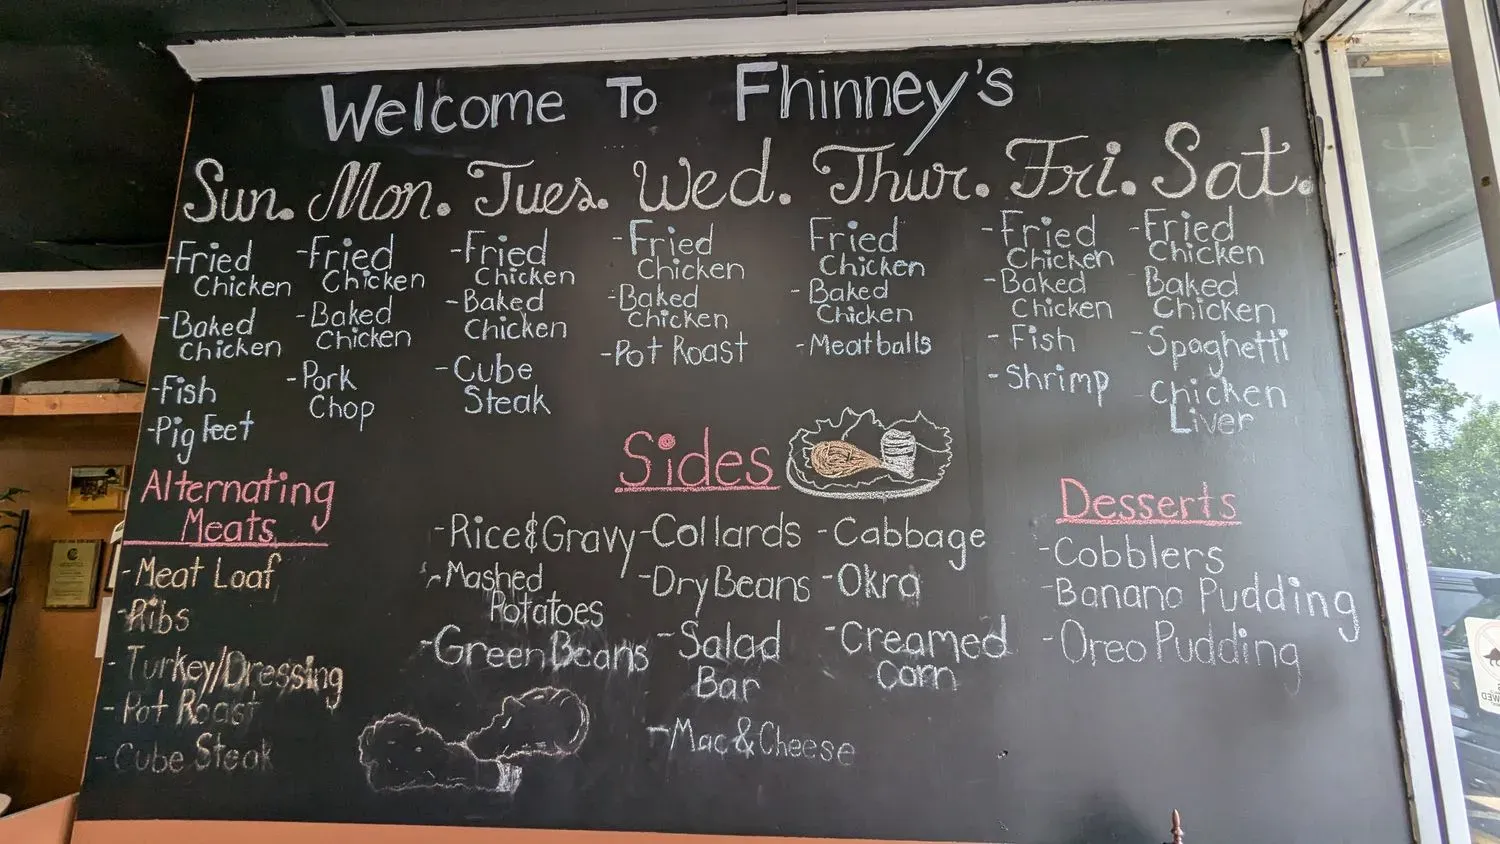 Welcome To Fhinney's
Sun. Mon. Tues. Wed. Thur. Fri. Sat.
-Fried
Chicken
-Baked
Chicken
-Fish
-Pig Feet
-Fried
Chicken
-Baked
Chicken
-Pork
Chop
-Fried
Chicken
-Baked
Chicken
-Cube
Steak
-Fried
Chicken
-Baked
Chicken
-Pot Roast
Fried
Chicken
-Baked
Chicken
-Meatballs
-Fried
Chicken
-Baked
Chicken
-Fish
-Shrimp
-Fried
Chicken
-Baked
Chicken
-Spaghetti
-Chicken
Liver
Alternating
Meats
-Meat Loaf
-Ribs
-Turkey/Dressing
-Pot Roast
-Cube Steak
Sides
-Rice&Gravy
-Mashed
Potatoes
-Green Beans
-Collards
-Dry Beans
-Salad
Bar
-Mac&Cheese
-Cabbage
-Okra
-Creamed
Corn
Desserts
-Cobblers
-Banana Pudding
-Oreo Pudding